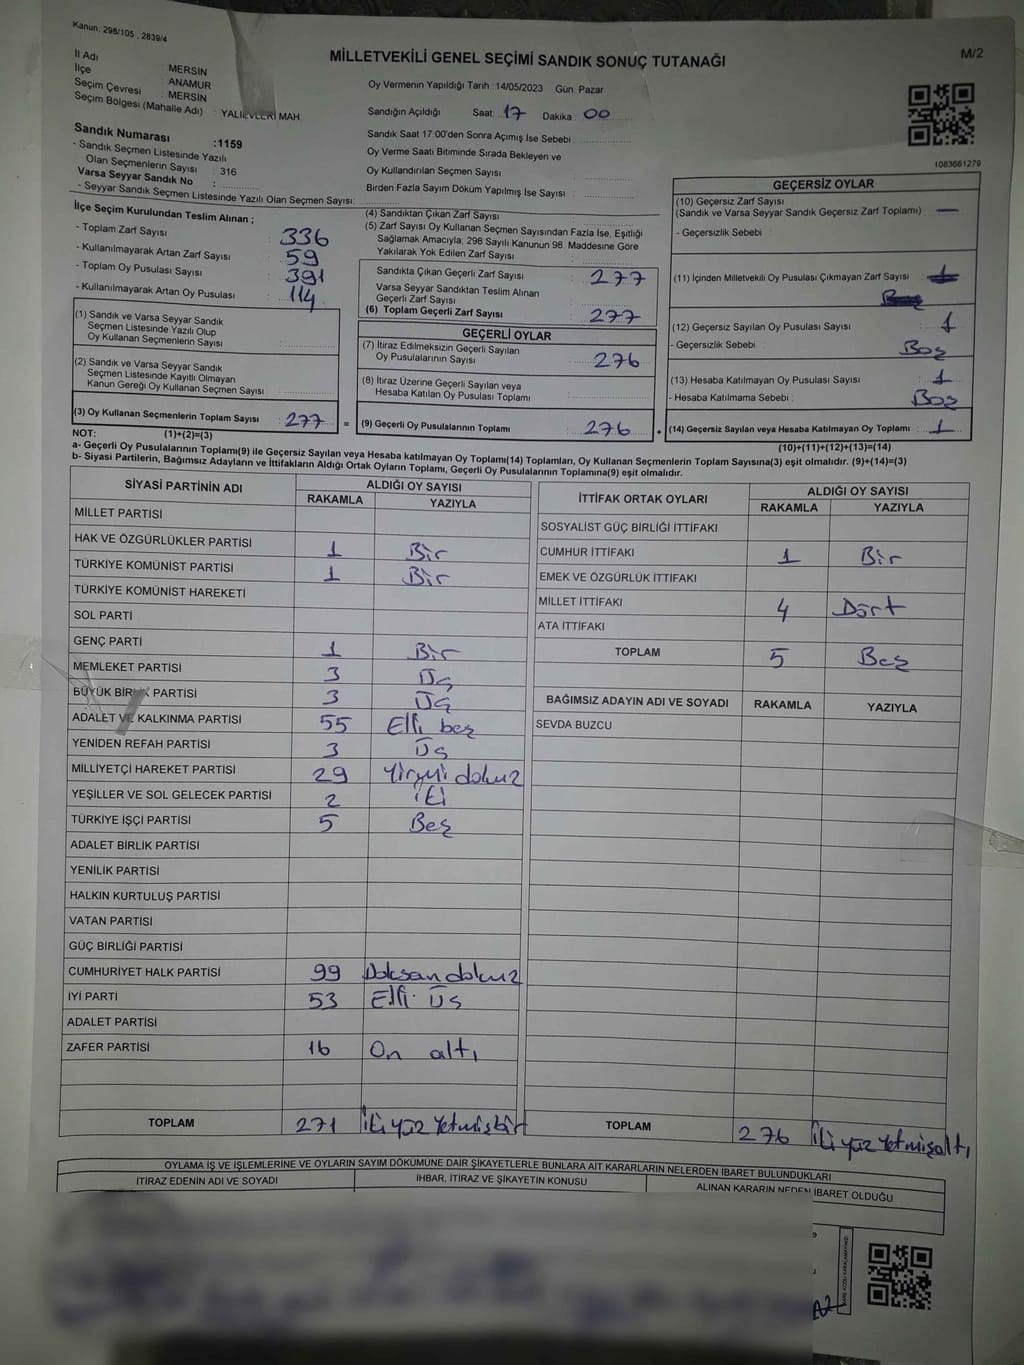 Kanun, 298/105 , 2839/4
MİLLETVEKİLİ GENEL SEÇİMİ SANDIK SONUÇ TUTANAĞI
M/2
İl Adı : MERSİN
İlçe : ANAMUR
Seçim Çevresi : MERSİN
Seçim Bölgesi (Mahalle Adı) : YALIEVLERİ MAH.
Sandık Numarası :1159
- Sandık Seçmen Listesinde Yazılı
Olan Seçmenlerin Sayısı : 316
Varsa Seyyar Sandık No :
- Seyyar Sandık Seçmen Listesinde Yazılı Olan Seçmen Sayısı:
Oy Vermenin Yapıldığı Tarih :14/05/2023 Gün: Pazar
Sandığın Açıldığı Saat: 17 Dakika: 00
Sandık Saat 17:00'den Sonra Açımış İse Sebebi :
Oy Verme Saati Bitiminde Sırada Bekleyen ve
Oy Kullandırılan Seçmen Sayısı :
Birden Fazla Sayım Döküm Yapılmış İse Sayısı :
1083661279
İlçe Seçim Kurulundan Teslim Alınan ;
- Toplam Zarf Sayısı : 336
- Kullanılmayarak Artan Zarf Sayısı : 59
- Toplam Oy Pusulası Sayısı : 391
- Kullanılmayarak Artan Oy Pusulası : 114
(1) Sandık ve Varsa Seyyar Sandık
Seçmen Listesinde Yazılı Olup
Oy Kullanan Seçmenlerin Sayısı :
(2) Sandık ve Varsa Seyyar Sandık
Seçmen Listesinde Kayıtlı Olmayan
Kanun Gereği Oy Kullanan Seçmen Sayısı :
(3) Oy Kullanan Seçmenlerin Toplam Sayısı : 277 =
(4) Sandıktan Çıkan Zarf Sayısı :
(5) Zarf Sayısı Oy Kullanan Seçmen Sayısından Fazla İse, Eşitliği
Sağlamak Amacıyla, 298 Sayılı Kanunun 98. Maddesine Göre
Yakılarak Yok Edilen Zarf Sayısı :
Sandıkta Çıkan Geçerli Zarf Sayısı : 277
Varsa Seyyar Sandıktan Teslim Alınan
Geçerli Zarf Sayısı :
(6) Toplam Geçerli Zarf Sayısı : 277
GEÇERLİ OYLAR
(7) İtiraz Edilmeksizin Geçerli Sayılan
Oy Pusulalarının Sayısı : 276
(8) İtiraz Üzerine Geçerli Sayılan veya
Hesaba Katılan Oy Pusulası Toplamı :
(9) Geçerli Oy Pusulalarının Toplamı : 276 +
GEÇERSİZ OYLAR
(10) Geçersiz Zarf Sayısı
(Sandık ve Varsa Seyyar Sandık Geçersiz Zarf Toplamı) : —
- Geçersizlik Sebebi :
(11) İçinden Milletvekili Oy Pusulası Çıkmayan Zarf Sayısı :
(12) Geçersiz Sayılan Oy Pusulası Sayısı : 1
- Geçersizlik Sebebi : Boş
(13) Hesaba Katılmayan Oy Pusulası Sayısı : 1
- Hesaba Katılmama Sebebi : Boş
(14) Geçersiz Sayılan veya Hesaba Katılmayan Oy Toplamı : 1
NOT: (1)+(2)=(3)
(10)+(11)+(12)+(13)=(14)
a- Geçerli Oy Pusulalarının Toplamı(9) ile Geçersiz Sayılan veya Hesaba katılmayan Oy Toplamı(14) Toplamları, Oy Kullanan Seçmenlerin Toplam Sayısına(3) eşit olmalıdır. (9)+(14)=(3)
b- Siyasi Partilerin, Bağımsız Adayların ve İttifakların Aldığı Ortak Oyların Toplamı, Geçerli Oy Pusulalarının Toplamına(9) eşit olmalıdır.
SİYASİ PARTİNİN ADI
ALDIĞI OY SAYISI
RAKAMLA YAZIYLA
MİLLET PARTİSİ
HAK VE ÖZGÜRLÜKLER PARTİSİ 1 Bir
TÜRKİYE KOMÜNİST PARTİSİ 1 Bir
TÜRKİYE KOMÜNİST HAREKETİ
SOL PARTİ
GENÇ PARTİ 1 Bir
MEMLEKET PARTİSİ 3 Üç
BÜYÜK BİRLİK PARTİSİ 3 Üç
ADALET VE KALKINMA PARTİSİ 55 Elli beş
YENİDEN REFAH PARTİSİ 3 Üç
MİLLİYETÇİ HAREKET PARTİSİ 29 Yirmi dokuz
YEŞİLLER VE SOL GELECEK PARTİSİ 2 iki
TÜRKİYE İŞÇİ PARTİSİ 5 Beş
ADALET BİRLİK PARTİSİ
YENİLİK PARTİSİ
HALKIN KURTULUŞ PARTİSİ
VATAN PARTİSİ
GÜÇ BİRLİĞİ PARTİSİ
CUMHURİYET HALK PARTİSİ 99 Doksan dokuz
İYİ PARTİ 53 Elli Üç
ADALET PARTİSİ
ZAFER PARTİSİ 16 On altı
TOPLAM 271 İki yüz Yetmiş bir
İTTİFAK ORTAK OYLARI
ALDIĞI OY SAYISI
RAKAMLA YAZIYLA
SOSYALİST GÜÇ BİRLİĞİ İTTİFAKI
CUMHUR İTTİFAKI 1 Bir
EMEK VE ÖZGÜRLÜK İTTİFAKI
MİLLET İTTİFAKI 4 Dört
ATA İTTİFAKI
TOPLAM 5 Beş
BAĞIMSIZ ADAYIN ADI VE SOYADI RAKAMLA YAZIYLA
SEVDA BUZCU
TOPLAM 276 İki yüz Yetmiş altı
OYLAMA İŞ VE İŞLEMLERİNE VE OYLARIN SAYIM DÖKÜMÜNE DAİR ŞİKAYETLERLE BUNLARA AİT KARARLARIN NELERDEN İBARET BULUNDUKLARI
İTİRAZ EDENİN ADI VE SOYADI
İHBAR, İTİRAZ VE ŞİKAYETİN KONUSU
ALINAN KARARIN NEDEN İBARET OLDUĞU